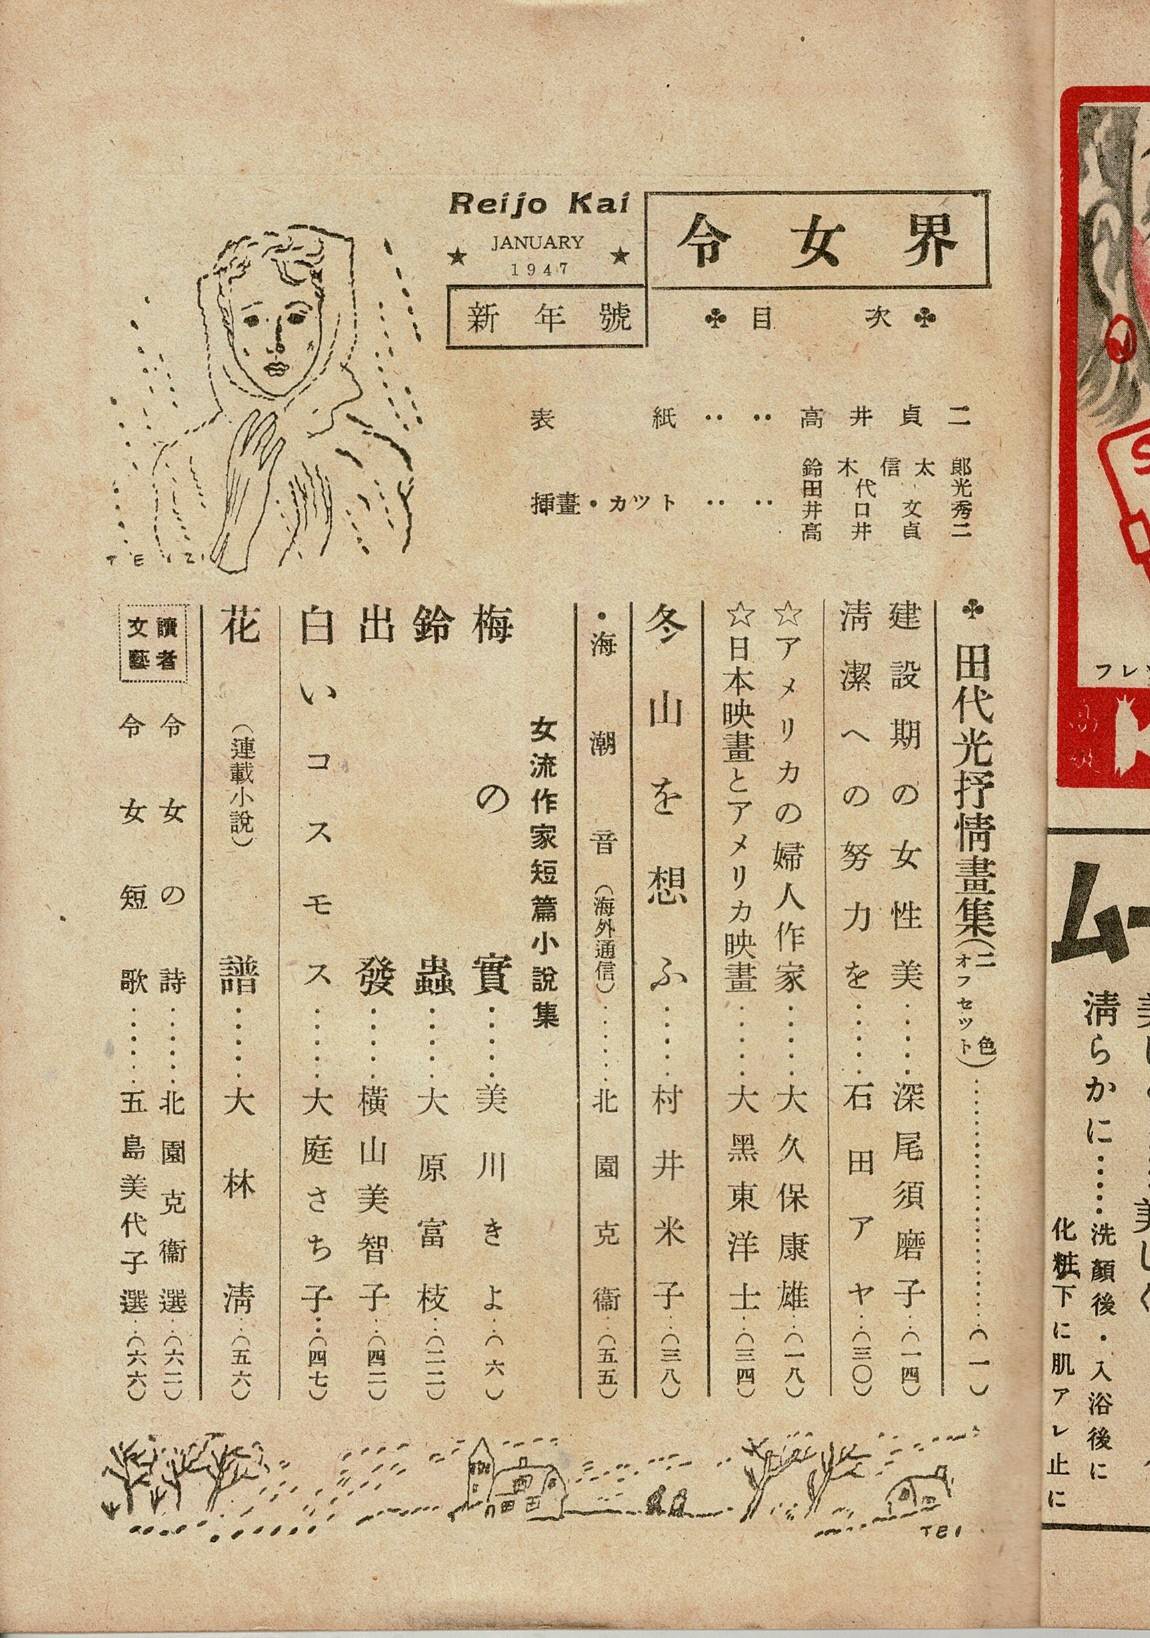 令女界
Reijo Kai
★ JANUARY ★
1947
新年號
♣ 目次 ♣
表紙‥‥高井貞二
挿畫・カット‥‥
鈴木信太郎
田代光
井口文秀
高井貞二
♣ 田代光抒情畫集(二色オフセット)……(一)
建設期の女性美……深尾須磨子…(一四)
淸潔への努力を……石田アヤ…(三〇)
☆アメリカの婦人作家……大久保康雄…(一八)
☆日本映畫とアメリカ映畫……大黑東洋士…(三四)
冬山を想ふ……村井米子…(三八)
・海潮音(海外通信)……北園克衞…(五五)
女流作家短篇小說集
梅の實……美川きよ…(六)
鈴蟲……大原富枝…(二二)
出發……橫山美智子…(四二)
白いコスモス……大庭さち子…(四七)
花譜(連載小說)……大林淸…(五六)
讀者文藝
令女の詩……北園克衞選…(六二)
令女短歌……五島美代子選…(六六)
TEIZI
TEI
フレッ
ムー
淸らかに……
洗顏後・入浴後に
化粧下に肌アレ止に